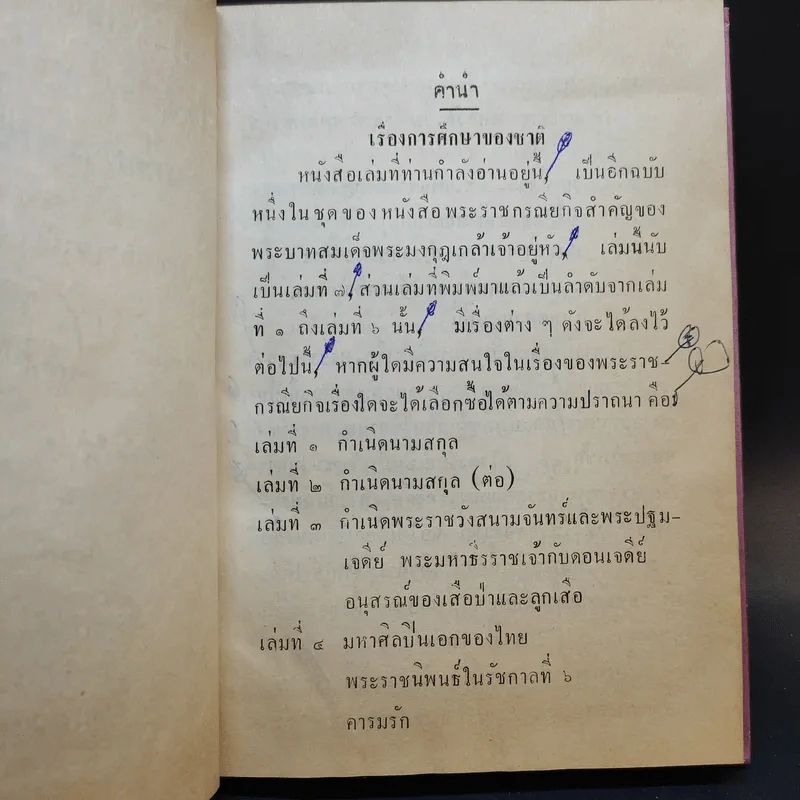 คำนำ
เรื่องการศึกษาของชาติ
หนังสือเล่มที่ท่านกำลังอ่านอยู่นี้, เป็นอีกฉบับ
หนึ่งใน ชุด ของ หนังสือ พระราชกรณียกิจสำคัญของ
พระบาทสมเด็จพระมงกุฎเกล้าเจ้าอยู่หัว, เล่มนี้นับ
เป็นเล่มที่ ๗, ส่วนเล่มที่พิมพ์มาแล้วเป็นลำดับจากเล่ม
ที่ ๑ ถึงเล่มที่ ๖ นั้น, มีเรื่องต่าง ๆ ดังจะได้ลงไว้
ต่อไปนี้, หากผู้ใดมีความสนใจในเรื่องของพระราช-
กรณียกิจเรื่องใดจะได้เลือกซื้อได้ตามความปราถนา คือ
เล่มที่ ๑ กำเนิดนามสกุล
เล่มที่ ๒ กำเนิดนามสกุล (ต่อ)
เล่มที่ ๓ กำเนิดพระราชวังสนามจันทร์และพระปฐม-
เจดีย์ พระมหาธีรราชเจ้ากับดอนเจดีย์
อนุสรณ์ของเสือป่าและลูกเสือ
เล่มที่ ๔ มหาศิลปินเอกของไทย
พระราชนิพนธ์ในรัชกาลที่ ๖
คารมรัก